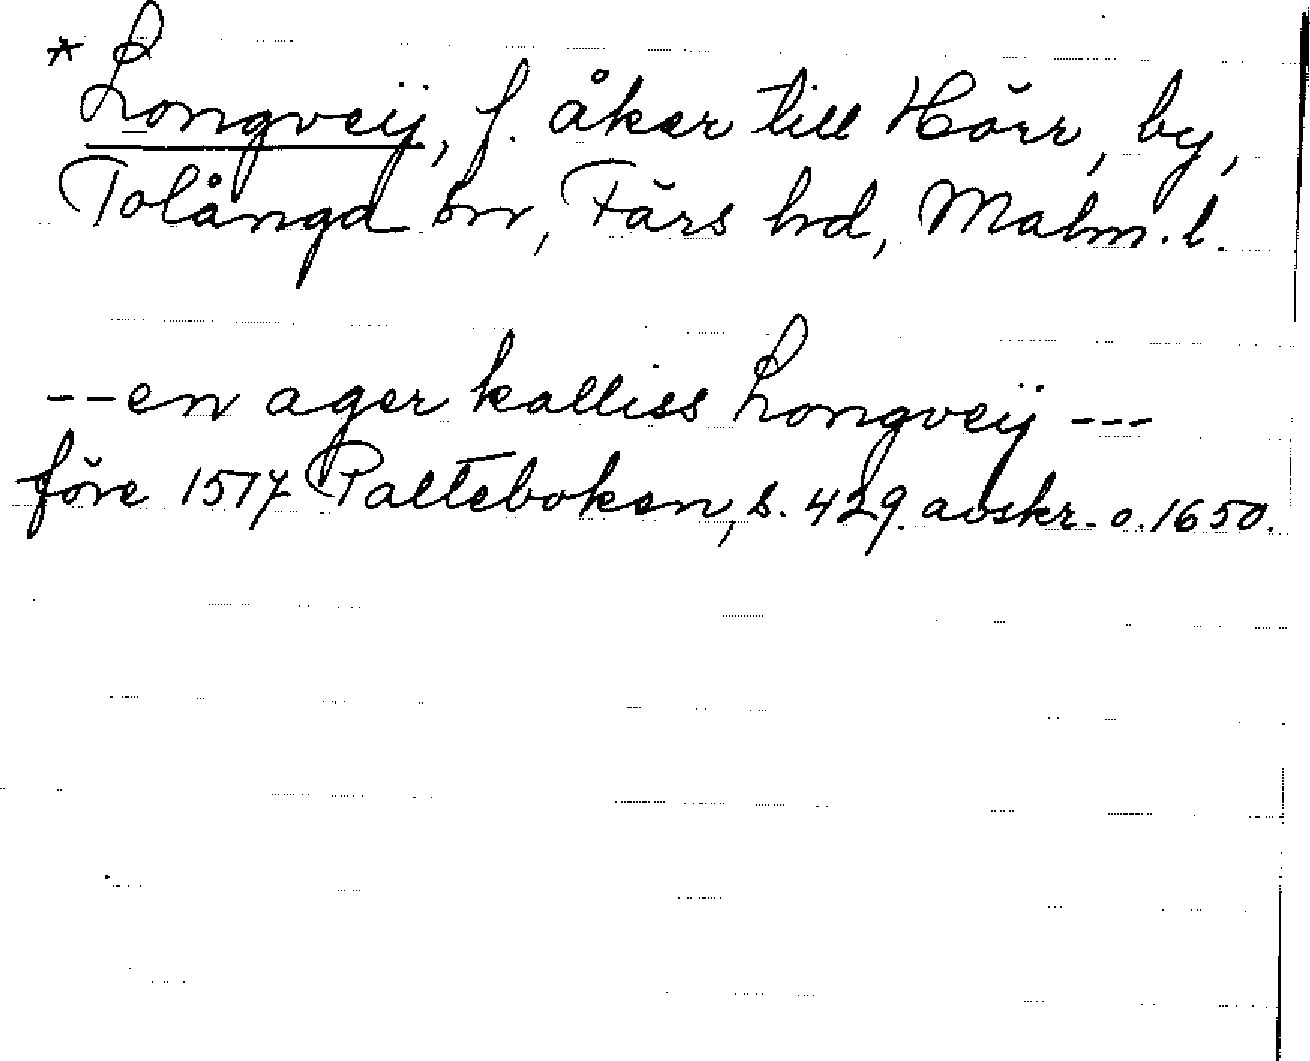 * Longveij, f. åker till Hörr, by,
Tolånga sn, Färs hd, Malm. l.
--en ager kalliss Longveij ---
före 1517 Palteboken, s. 429. avskr. o. 1650.